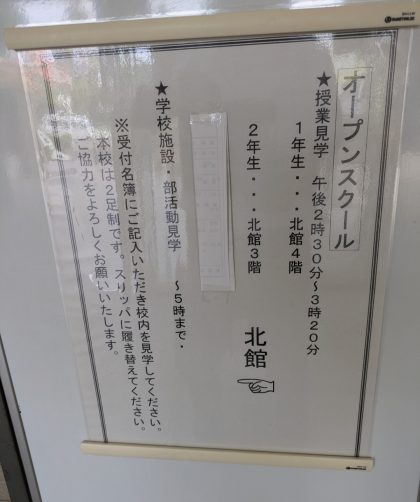 オープンスクール
★授業見学　午後2時30分～3時20分
1年生・・・北館4階
2年生・・・北館3階
北館
★学校施設・部活動見学　～5時まで・
※受付名簿にご記入いただき校内を見学してください。
本校は2足制です。スリッパに履き替えてください。
ご協力をよろしくお願いいたします。